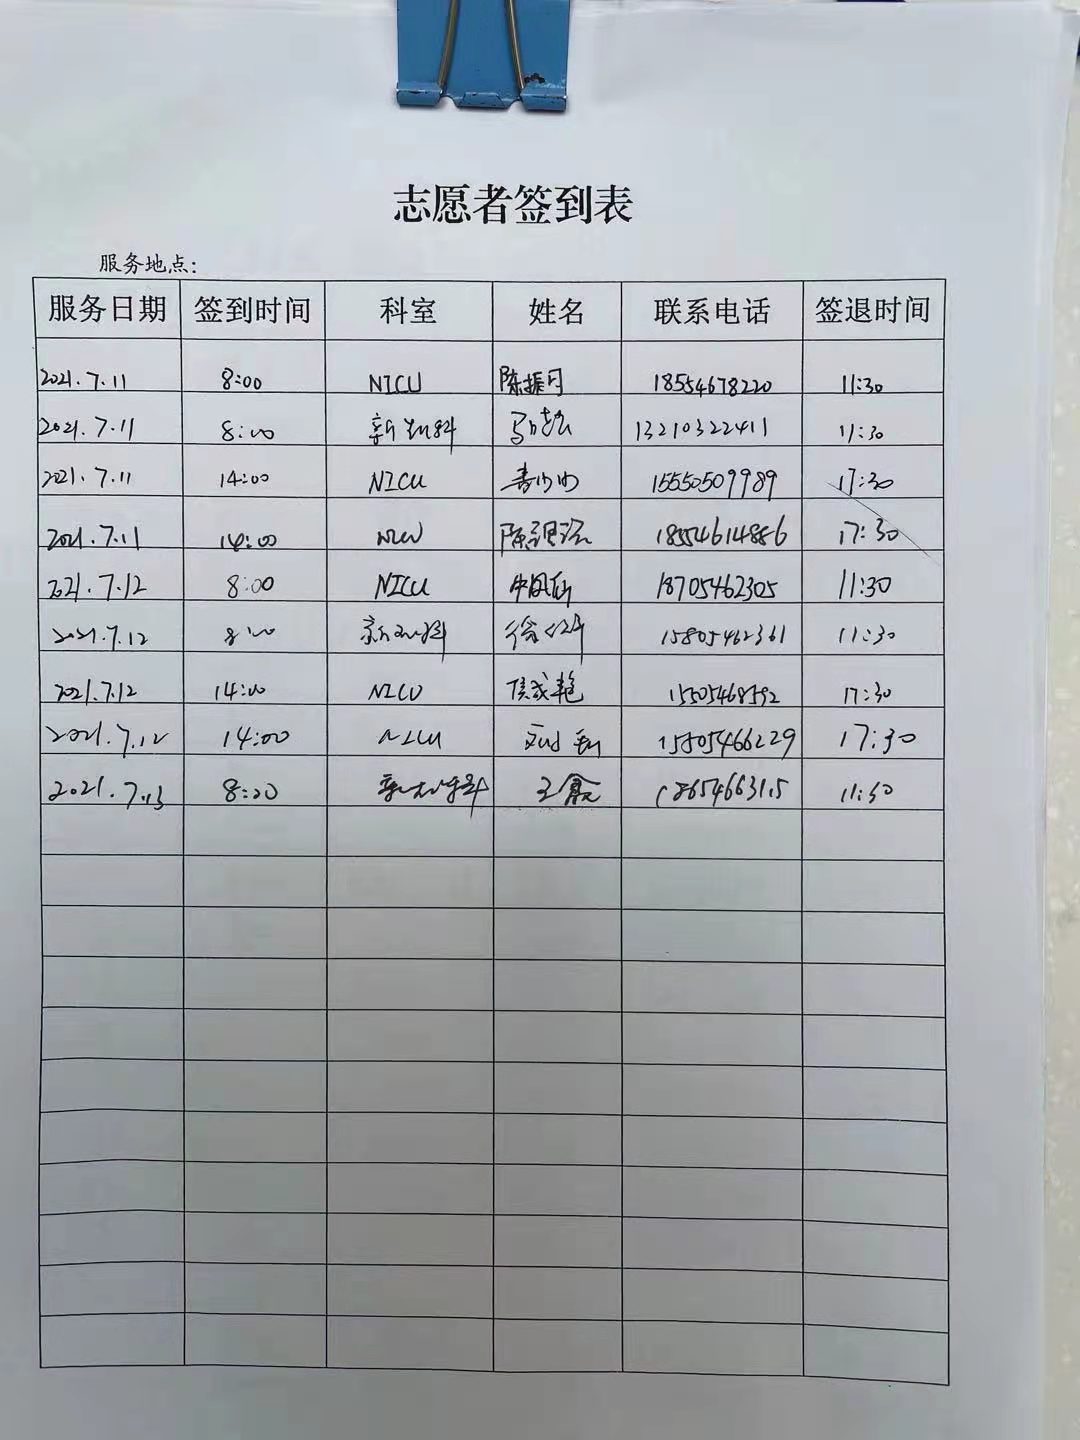 志愿者签到表
服务地点：
服务日期 签到时间 科室 姓名 联系电话 签退时间
2021.7.11 8:00 NICU 陈振月 18554678220 11:30
2021.7.11 8:00 新 科 马 13210322411 11:30
2021.7.11 14:00 NICU 15550509989 17:30
2021.7.11 14:00 NICU 陈 18554614886 17:30
2021.7.12 8:00 NICU 18705462305 11:30
2021.7.12 8:00 新 科 徐 15805462361 11:30
2021.7.12 14:00 NICU 17:30
2021.7.12 14:00 NICU 刘 17:30
2021.7.13 8:00 新 科 王鑫 11:30